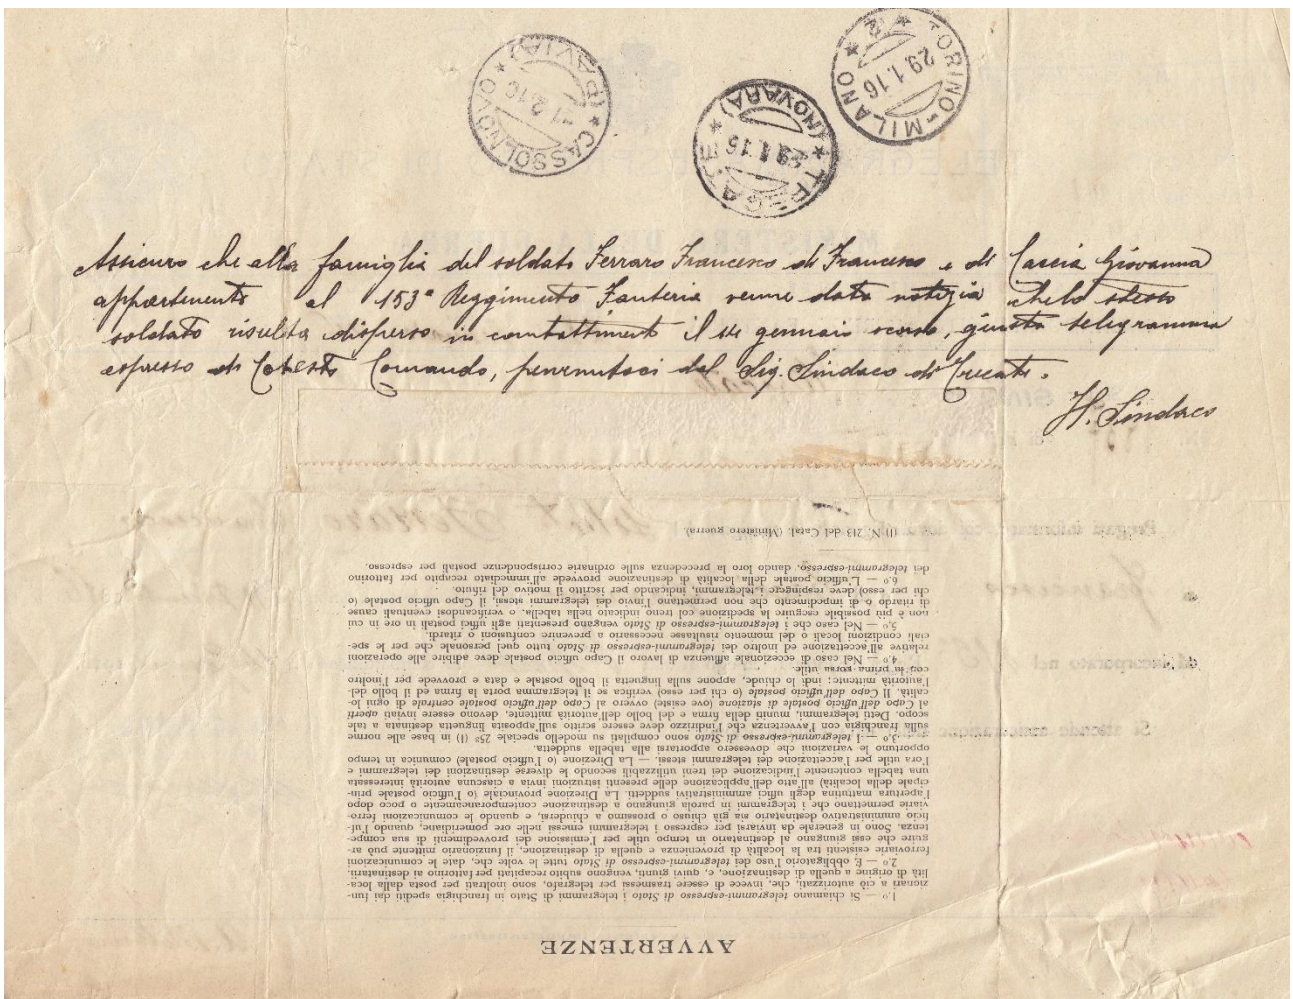 CASSOLNOLO (PAVIA)
TRECATE (NOVARA)
29.1.16
TORINO-MILANO
29.1.16
Assicuro che alla famiglia del soldato Ferraro Francesco di Francesco e di Caccia Giovanna
appartenente al 153° Reggimento Fanteria venne data notizia che lo stesso
soldato risulta disperso in combattimento il 14 gennaio scorso, giusta telegramma
espresso di Codesto Comando, pervenutoci dal Sig. Sindaco di Trecate.
Il Sindaco
AVVERTENZE
1.° — Si chiamano telegrammi-espresso di Stato i telegrammi di Stato in franchigia spediti dai fun-
zionari a ciò autorizzati, che, invece di essere trasmessi per telegrafo, sono inoltrati per posta dalla loca-
lità di origine a quella di destinazione, e, quivi giunti, vengono subito recapitati per fattorino ai destinatari.
2.° — È obbligatorio l'uso dei telegrammi-espresso di Stato tutte le volte che, date le comunicazioni
ferroviarie esistenti tra la località di provenienza e quella di destinazione, il funzionario mittente può ar-
guire che essi giungano al destinatario in tempo utile per l'emissione dei provvedimenti di sua compe-
tenza. Sono in generale da inviarsi per espresso i telegrammi emessi nelle ore pomeridiane, quando l'uf-
ficio amministrativo destinatario sia già chiuso o prossimo a chiudersi, e quando le comunicazioni ferro-
viarie permettano che i telegrammi in parola giungano a destinazione contemporaneamente o poco dopo
l'apertura mattutina degli uffici amministrativi suddetti. La Direzione provinciale (o l'ufficio postale prin-
cipale della località) all'atto dell'applicazione delle presenti istruzioni invia a ciascuna autorità interessata
una tabella contenente l'indicazione dei treni utilizzabili secondo le diverse destinazioni dei telegrammi e
l'ora utile per l'accettazione dei telegrammi stessi. — La Direzione (o l'ufficio postale) comunica in tempo
opportuno le variazioni che dovessero apportarsi alla tabella suddetta.
3.° — I telegrammi-espresso di Stato sono compilati su modello speciale 25ª (1) in base alle norme
sulla franchigia con l'avvertenza che l'indirizzo deve essere scritto sull'apposita linguetta destinata a tale
scopo. Detti telegrammi, muniti della firma e del bollo dell'autorità mittente, devono essere inviati aperti
al Capo dell'ufficio postale di stazione (ove esiste) ovvero al Capo dell'ufficio postale centrale di ogni lo-
calità. Il Capo dell'ufficio postale (o chi per esso) verifica se il telegramma porta la firma ed il bollo del-
l'autorità mittente; indi lo chiude, appone sulla linguetta il bollo postale e data e provvede per l'inoltro
con la prima corsa utile.
4.° — Nel caso di eccezionale affluenza di lavoro il Capo ufficio postale deve adibire alle operazioni
relative all'accettazione ed inoltro dei telegrammi-espresso di Stato tutto quel personale che per le spe-
ciali condizioni locali o del momento risultasse necessario a prevenire confusioni o ritardi.
5.° — Nel caso che i telegrammi-espresso di Stato vengano presentati agli uffici postali in ore in cui
non è più possibile eseguire la spedizione col treno indicato nella tabella, o verificandosi eventuali cause
di ritardo o di impedimento che non permettano l'invio dei telegrammi stessi, il Capo ufficio postale (o
chi per esso) deve respingere i telegrammi, indicando per iscritto il motivo del rifiuto.
6.° — L'ufficio postale della località di destinazione provvede all'immediato recapito per fattorino
dei telegrammi-espresso, dando loro la precedenza sulle ordinarie corrispondenze postali per espresso.
(1) N. 213 del Catal. (Ministero guerra)